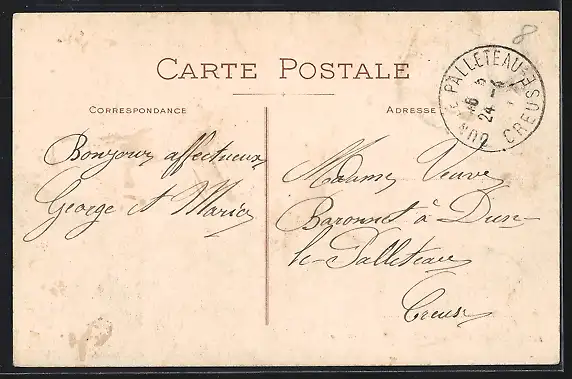 8
CARTE POSTALE
CORRESPONDANCE
ADRESSE
DUN LE PALLETEAU
CREUSE
24
Bonjour affectueux
George et Maria
Madame Veuve
Baronnet à Dun-
le-Palleteau
Creuse